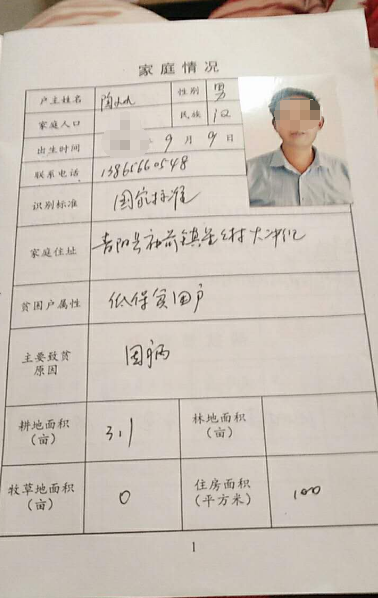 家庭情况
户主姓名 陶 性别 男
家庭人口 民族 汉
出生时间 9月9日
联系电话 13865660548
识别标准 国家标准
家庭住址 青阳县 镇 村大冲组
贫困户属性 低保贫困户
主要致贫
原因
因病
耕地面积
(亩)
3.1
林地面积
(亩)
牧草地面积
(亩)
0
住房面积
(平方米)
100
1